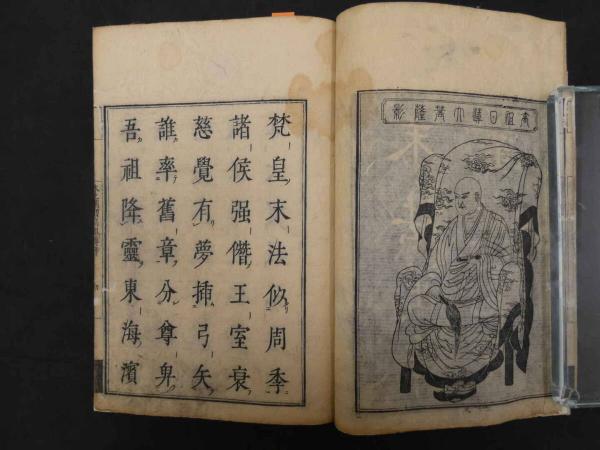 祖日蓮大菩薩影
梵皇末法似周季
諸侯强僭王室衰
慈覺有夢挿弓矢
誰率舊章分尊卑
吾祖降靈東海濱